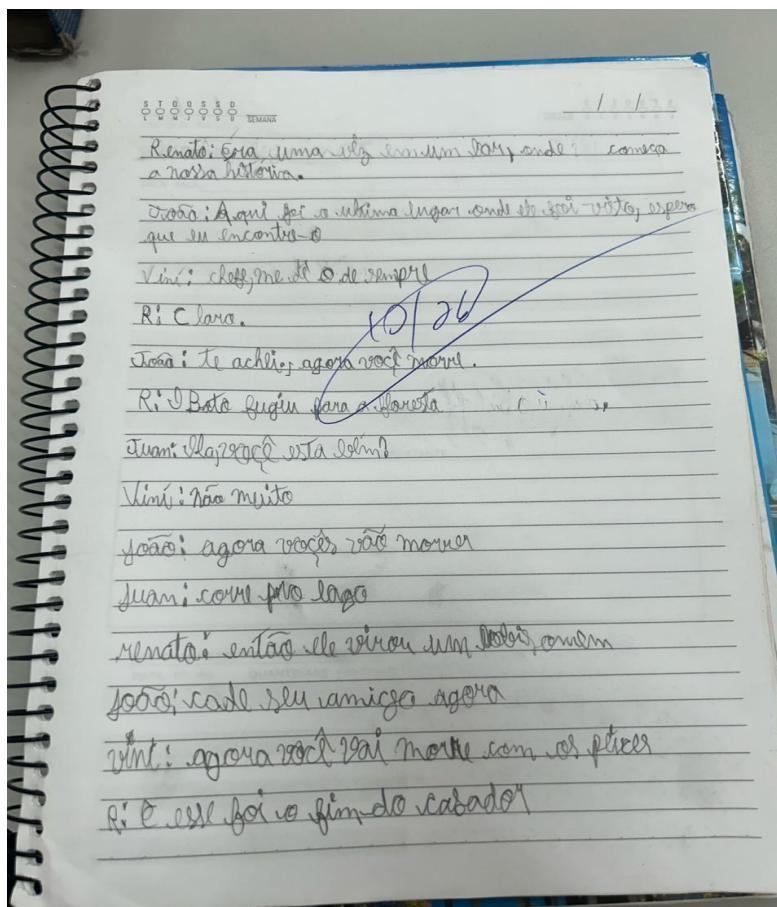 S T Q Q S S D
L M M J V S D
SEMANA
/ /
Renato: Era uma vez em um bar, onde começa
a nossa história.
João: Aqui foi o ultimo lugar onde ele foi visto, espero
que eu encontre-o
Vini: chefe, me dê o de sempre
R: Claro.
10/26
João: te achei, agora você morre.
R: O Boto fugiu para a floresta
Juan: Ola, você esta bem?
Vini: não muito
joão: agora voçês vão morrer
juan: corre pro lago
renato: então ele virou um lobis omem
joão: cade seu amigo agora
vini: agora você vai morre com os peixes
R: E esse foi o fim do casador